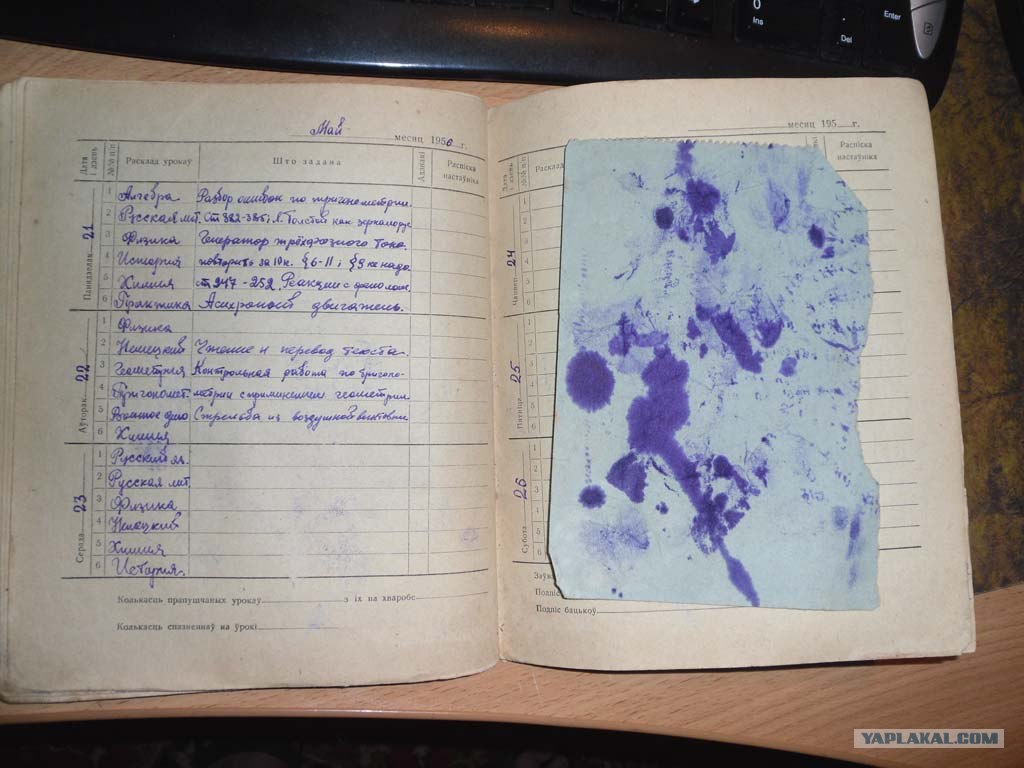 0
Ins
.
Del
Enter
Май месяц 1956 г.
Дата і дзень №№ п/п Расклад урокаў Што задана Адзнакі Распіска настаўніка
Панядзелак 21
1 Алгебра Разбор ошибок по тригонометрии.
2 Русская лит. Ст 382-385; Л. Толстой как зеркало рус
3 Физика Генератор трёхфазного тока.
4 История повторить за 10 к. § 6-11; § 9 не надо
5 Химия ст 247-252. Реакции с фенолом.
6 Практика Асихронный двигатель.
Аўторак 22
1 Физика
2 Немецкий Чтение и перевод текста.
3 Геометрия Контрольная работа по тригоно-
4 Тригономет. метрии с применением геометрии
5 Военное дело Стрельба из воздушной винтовки
6 Химия
Серада 23
1 Русский яз.
2 Русская лит.
3 Физика
4 Немецкий
5 Химия
6 История.
Колькасць прапушчаных урокаў з іх па хваробе
Колькасць спазненняў на ўрокі
месяц 195 г.
Дата і дзень №№ п/п Расклад Распіска настаўніка
Чацвер 24
Пятніца 25
Субота 26
1
2
3
4
5
6
Заўв
Подпіс
Подпіс бацькоў
YAPLAKAL.COM